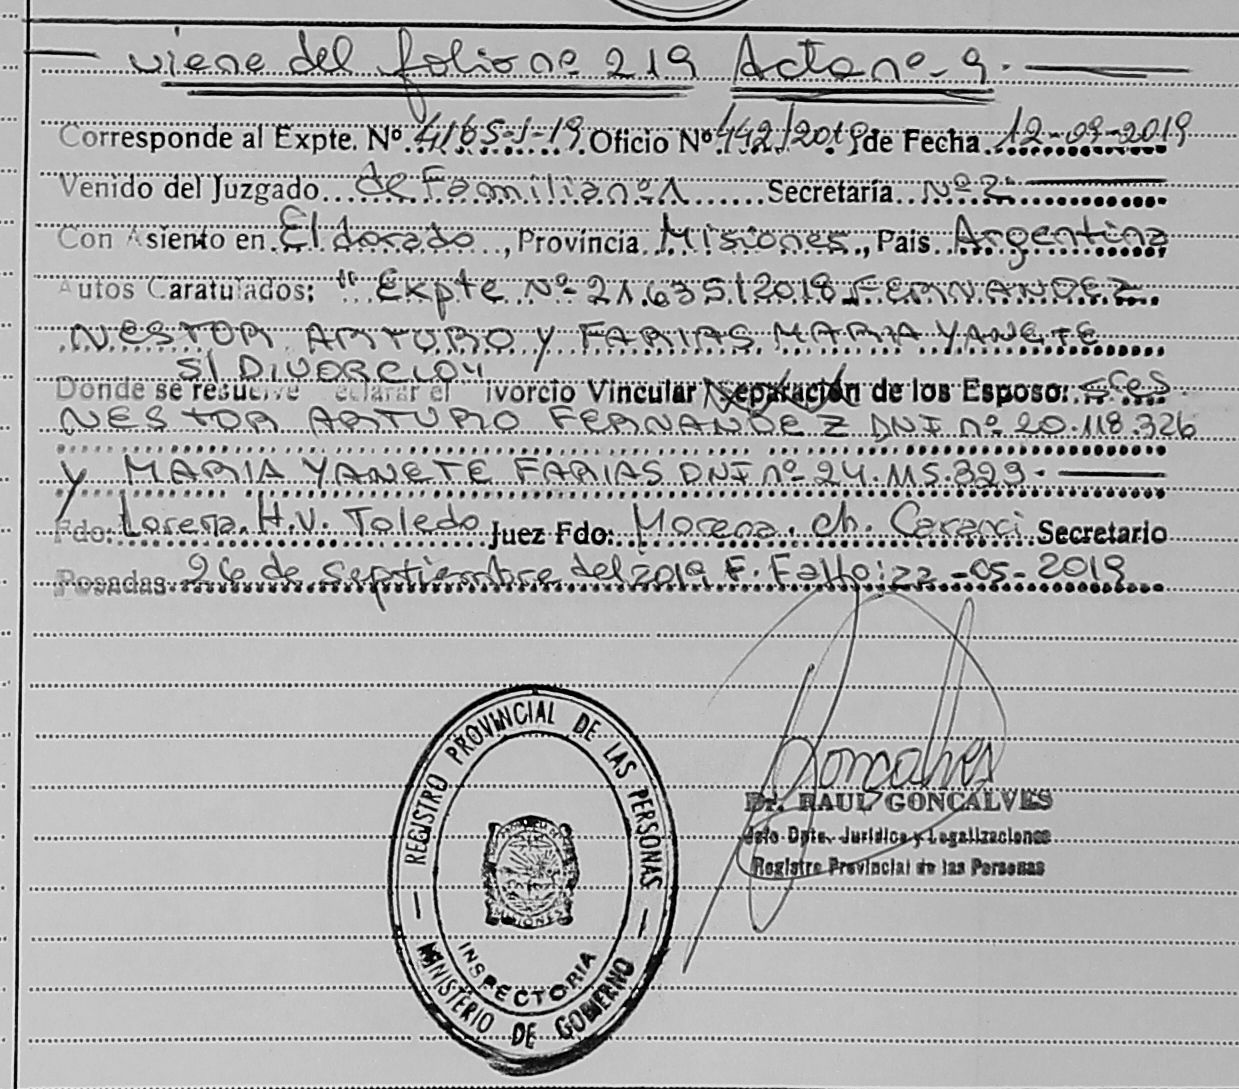 viene del folio nº 219 Acta nº 9.
Corresponde al Expte. Nº 4165-J-19 Oficio Nº 442/2019 de Fecha 12-09-2019
Venido del Juzgado de Familia nº 1 Secretaría Nº 2
Con Asiento en Eldorado, Provincia Misiones, País Argentina
Autos Caratulados: "Expte Nº 21.635/2018 FERNANDEZ
NESTOR ARTURO Y FARIAS MARIA YANETE
S/ DIVORCIO"
Donde se resuelve declarar el Divorcio Vincular Separación de los Esposo: Sres
NESTOR ARTURO FERNANDEZ DNI nº 20.118.326
y MARIA YANETE FARIAS DNI nº 24.115.329.
Fdo: Lorena. H.V. Toledo Juez Fdo: Morena. Ch. Caraci Secretario
Posadas 26 de Septiembre del 2019 F. Fallo: 22-05-2019
REGISTRO PROVINCIAL DE LAS PERSONAS
MISIONES
INSPECTORIA
MINISTERIO DE GOBIERNO
Goncalves
Dr. RAUL GONCALVES
Jefe Dpto. Jurídica y Legalizaciones
Registro Provincial de las Personas